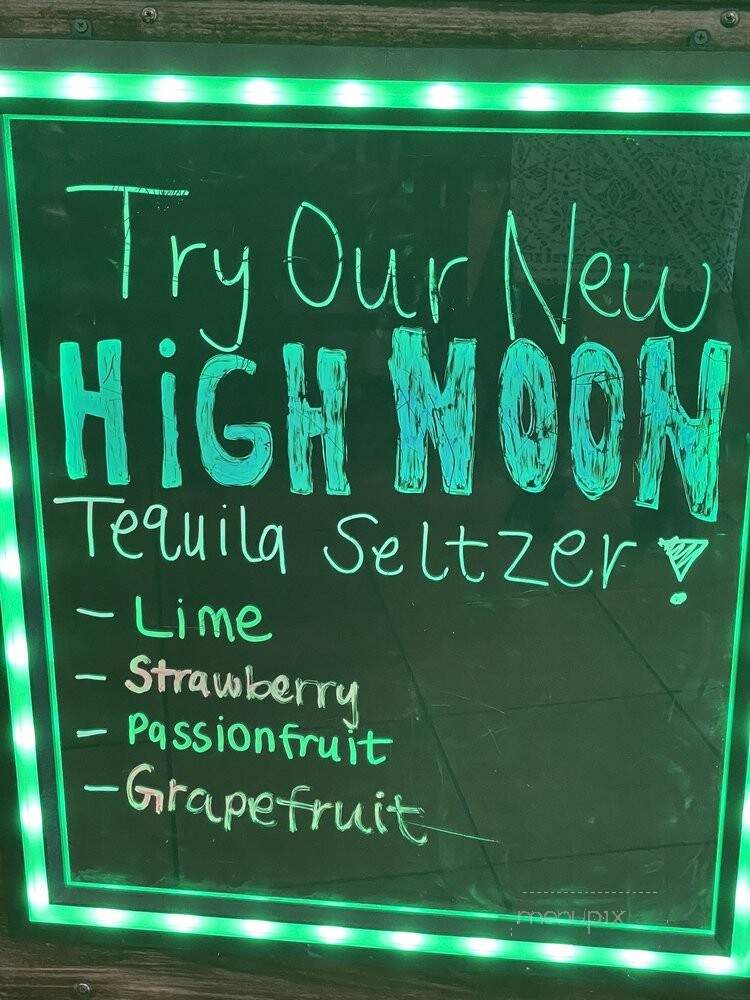 Try Our New
HiGH NOON
Tequila Seltzer!
- Lime
- Strawberry
- Passionfruit
- Grapefruit
menupix